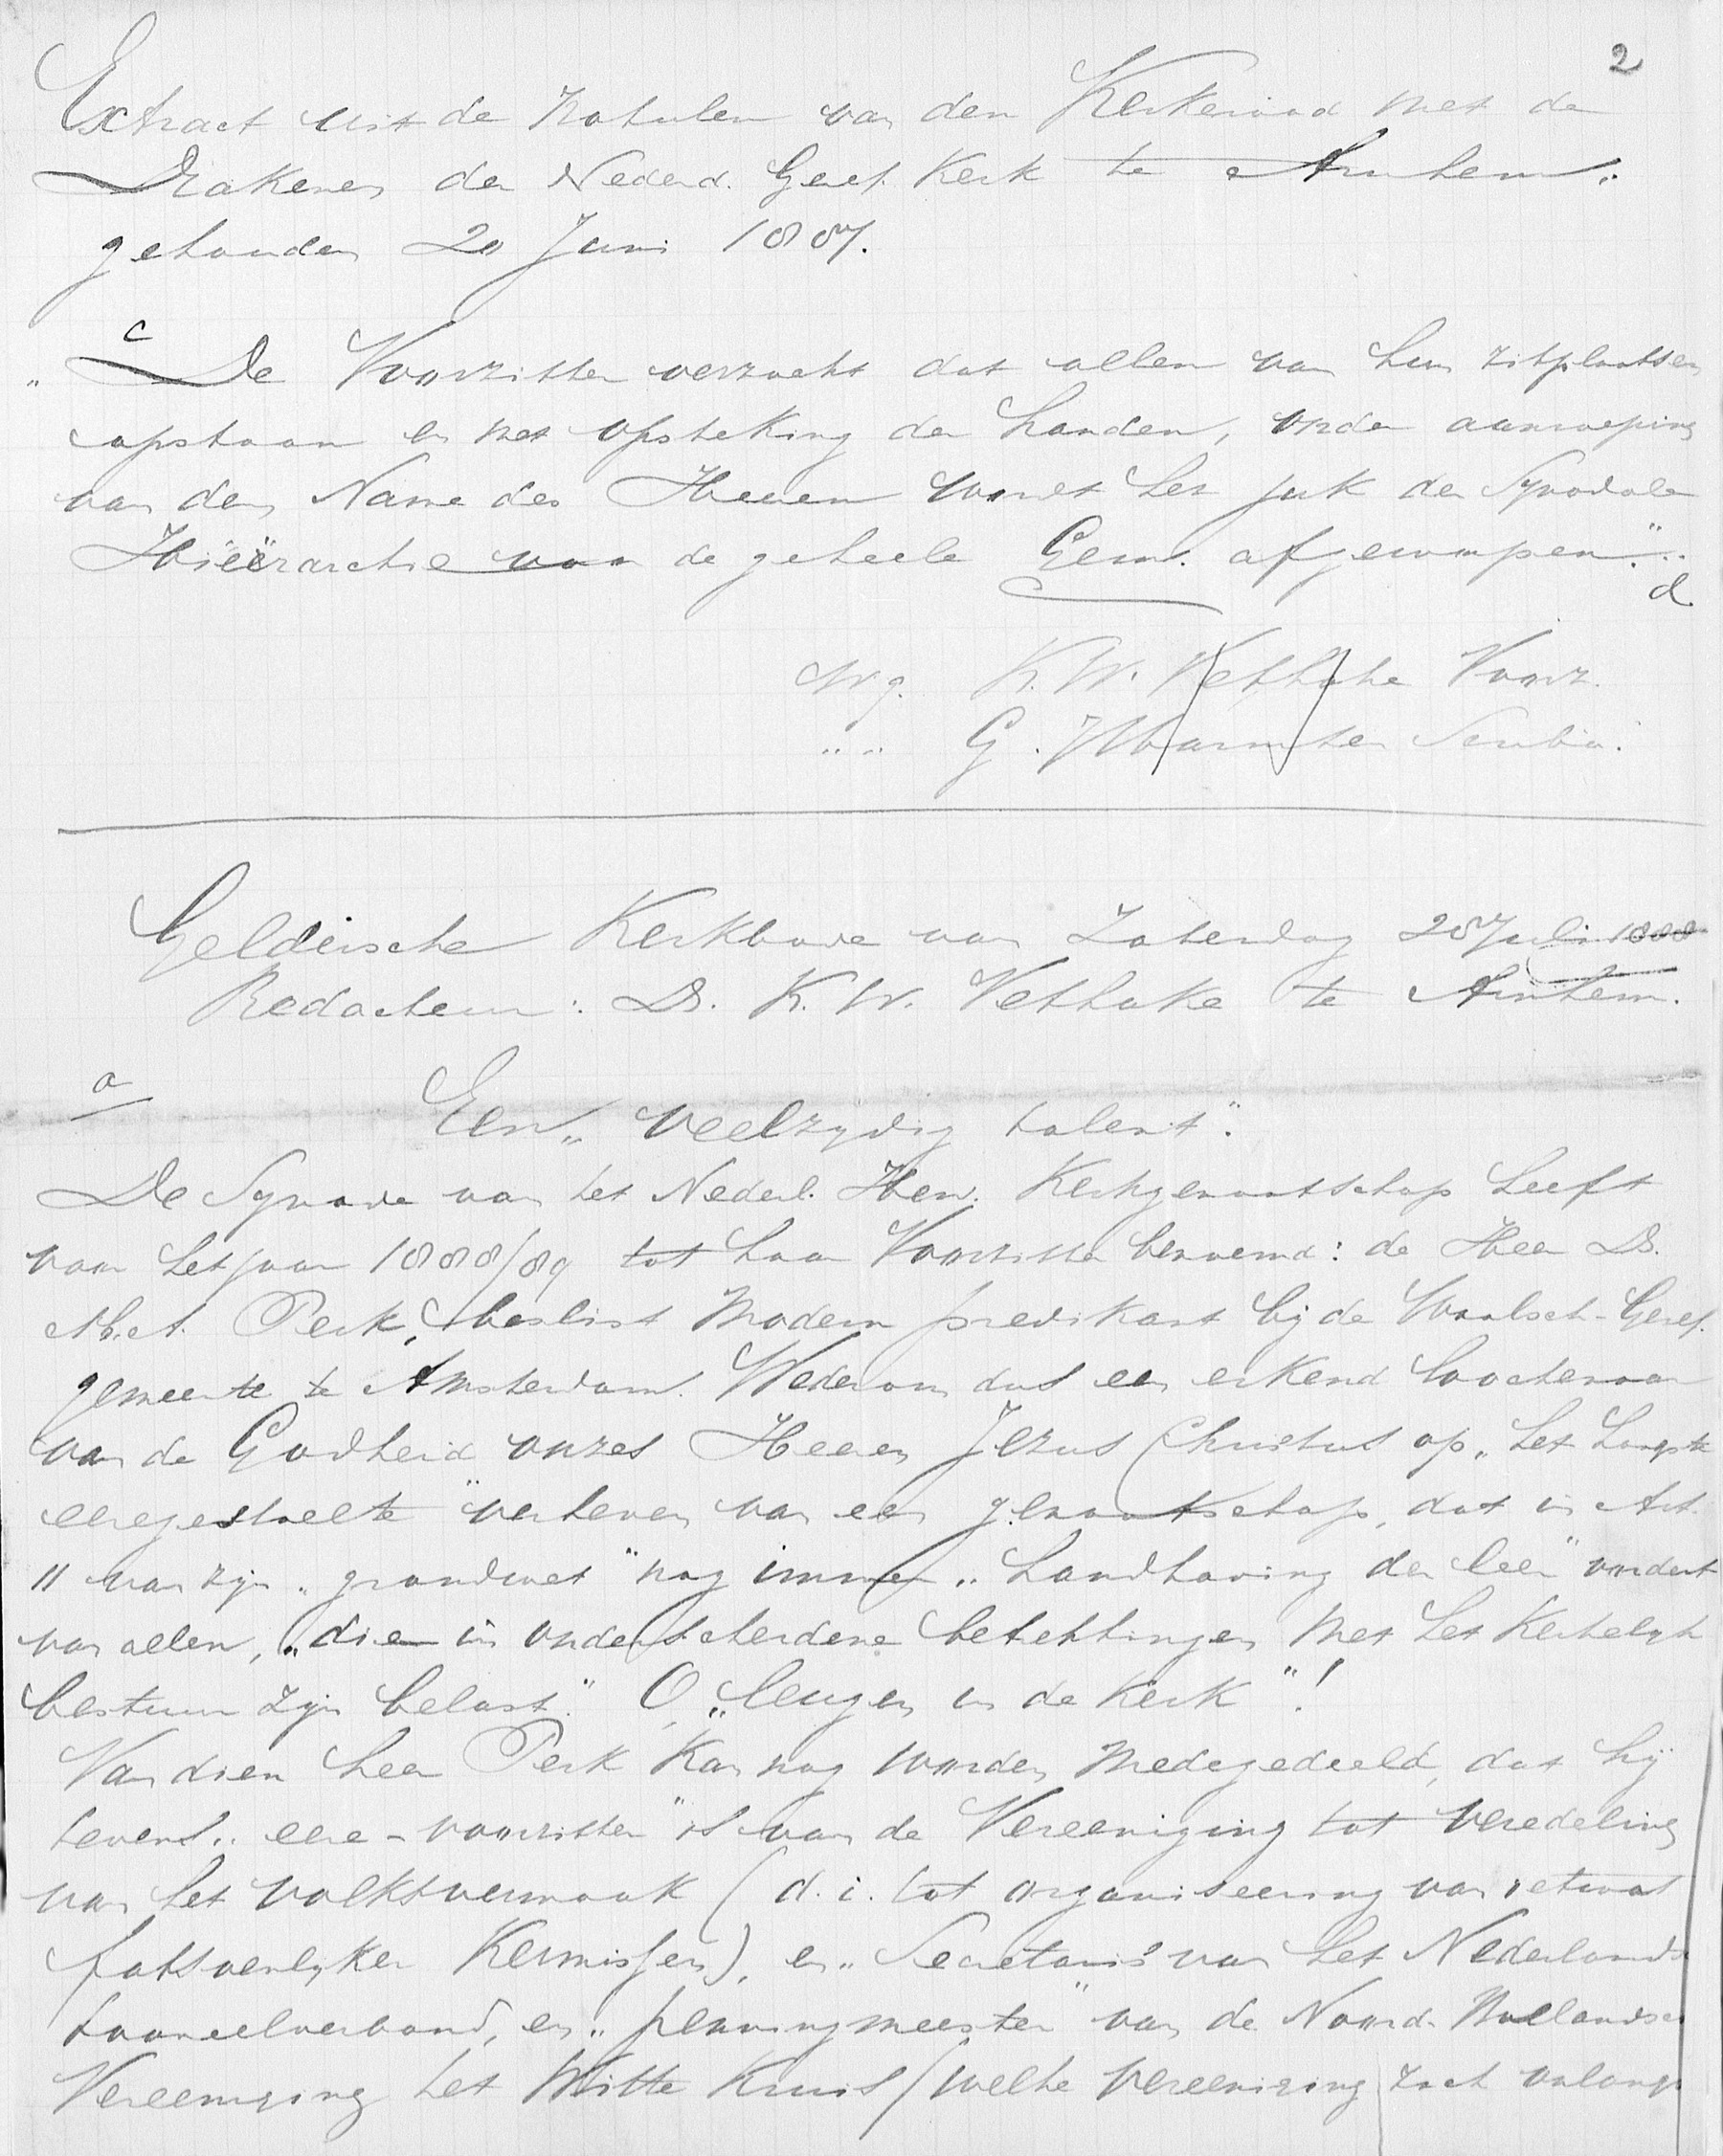 2
Extract uit de Notulen van den Kerkeraad met de
Diakenen der Nederd. Geref. Kerk te Arnhem.
gehouden 20 Juni 1887.
c
„De Voorzitter verzocht dat allen van hun zitplaatsen
opstaan en met opsteking der handen, onder aanroeping
van den Name des Heeren wordt het juk der Synodale
Hiëerarchie voor de geheele Gem. afgeworpen.".
d.
Wg. K. W. Vethake Voorz.
„ „ G. Harmsen Scriba.
Geldersche Kerkbode van Zaterdag 28 Juli 1888
Redacteur: Ds. K. W. Vethake te Arnhem.
a
Een „veelzydig talent".
De Synode van het Nederl. Herv. Kerkgenootschap heeft
voor het jaar 1888/89 tot haar Voorzitter benoemd: de Heer Ds.
M.A. Perk, beslist modern predikant bij de Waalsch-Geref.
gemeente te Amsterdam. Wederom dus een erkend loochenaar
van de Godheid onzes Heeren Jezus Christus op „het hoogste
eeregestoelte" verheven van een genootschap, dat in Art.
11 van zijn „grondwet" nog immer „handhaving der leer" vordert
van allen, „die in onderscheidene betrekkingen met het Kerkelijk
bestuur zijn belast." O, „leugen in de Kerk"!
Van dien heer Perk kan nog worden medegedeeld, dat hij
tevens „eere-voorzitter" is van de Vereeniging tot veredeling
van het volksvermaak (d. i. tot organiseering van ietwat
fatsoenlijker Kermissen), en „Secretaris van het Nederlandsch
tooneelverbond, en „penningmeester" van de Noord-Hollandsche
Vereeniging het Witte Kruis (welke Vereeniging zich onlangs